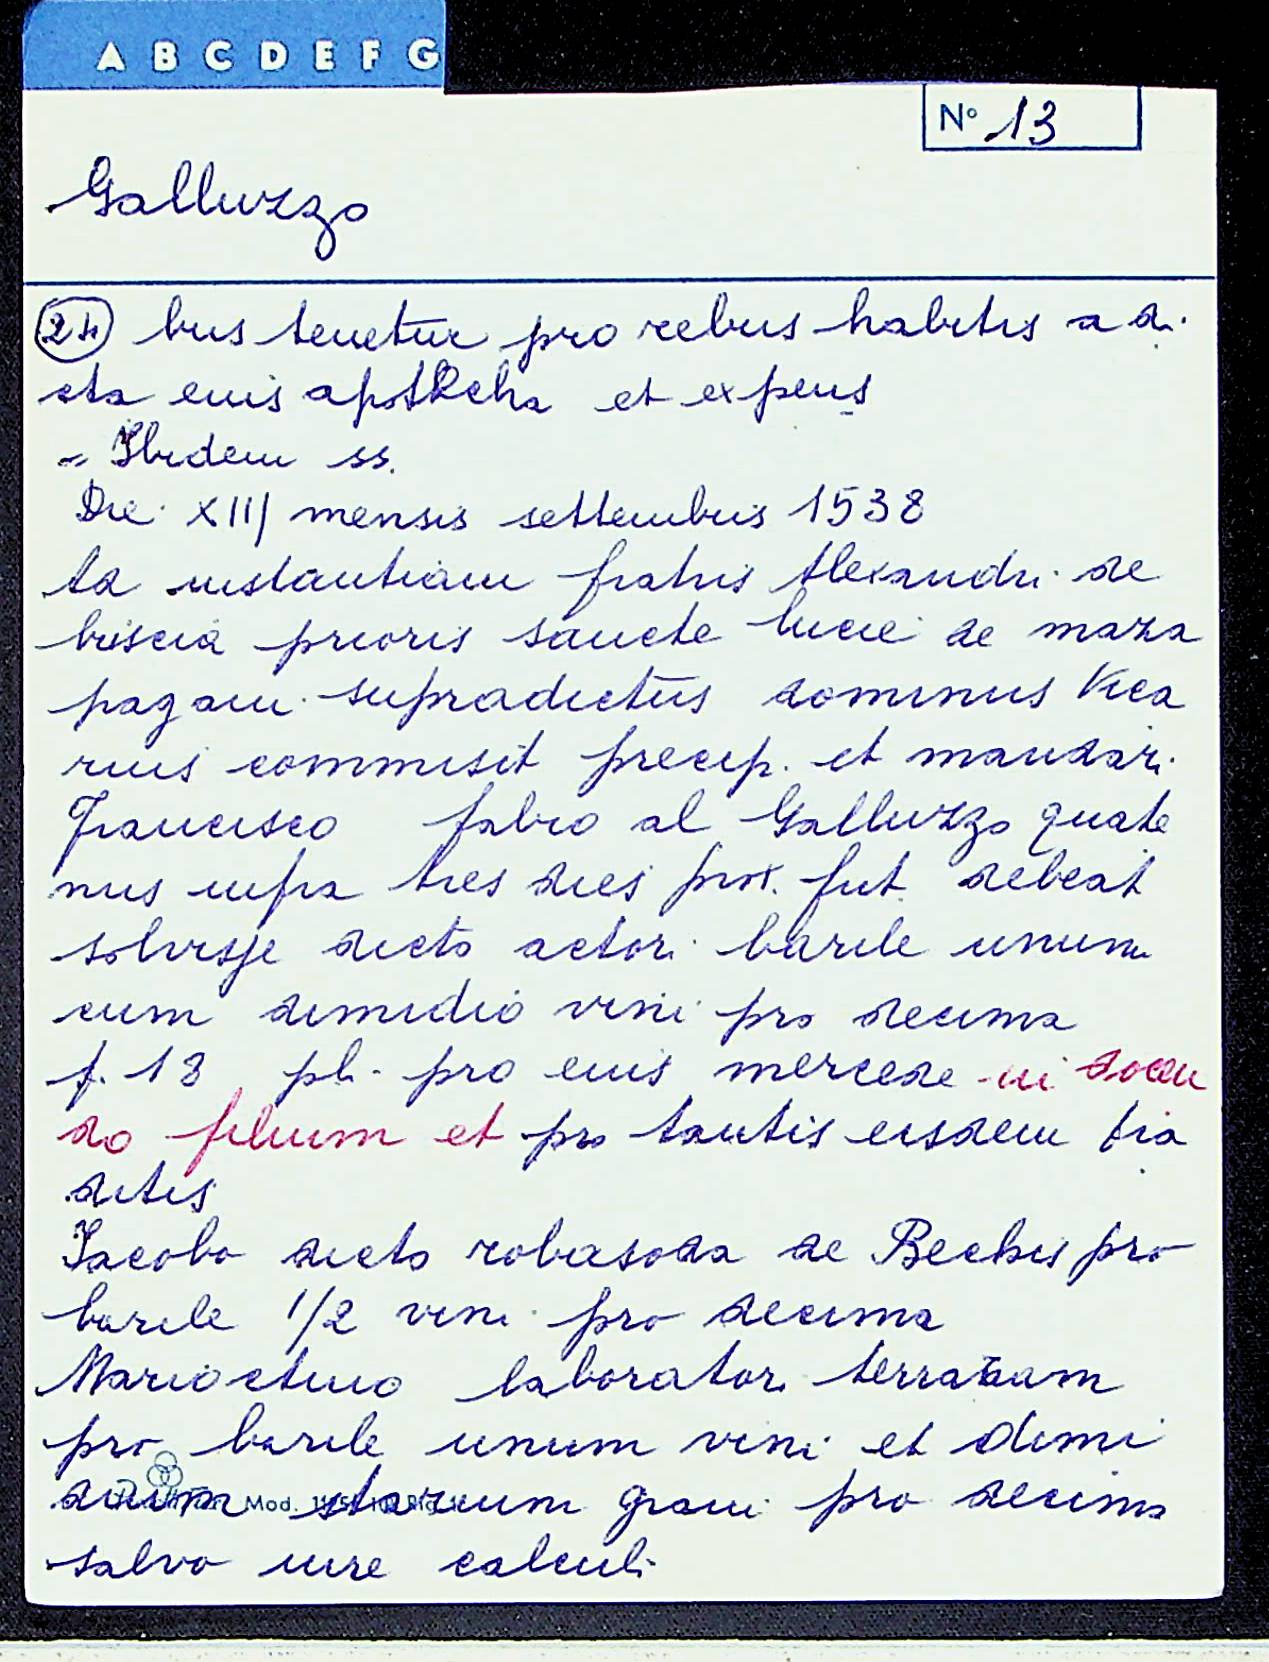 A B C D E F G
N° 13
Galluzzo
24 bus tenetur pro rebus habitis a di
cta eius apotheca et expens
" Ibidem ss.
Die XIII mensis settembris 1538
Ad instantiam fratris Alexandri de
briscia prioris sancte lucie de maza
pagani supradictus dominus Vica
rius commisit precip. et mandari
Francisco fabro al Galluzzo quate
nus infra tres dies prox. fut. debeat
solvisse dicto actori barile unum
cum dimidio vini pro decima
f. 18 pl. pro eius mercede in docen
do filium et pro tantis eisdem tra
ditis
Iacobo dicto robasoda de Bechis pro
barile 1/2 vini pro decima
Marioctino laborator. terrarum
pro barile unum vini et dimi
dium starium grani pro decima
Mod.
salvo iure calculi